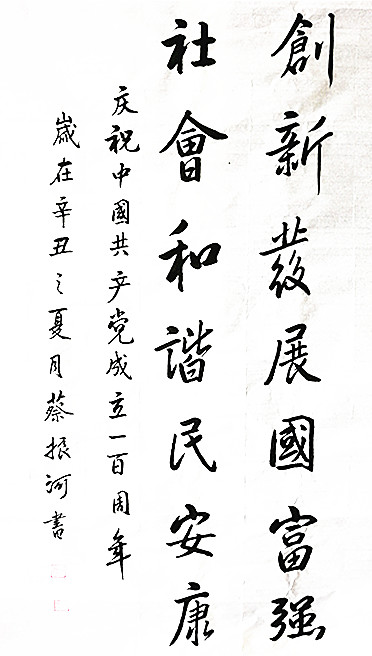 創新發展國富强
社會和諧民安康
庆祝中國共产党成立一百周年
歲在辛丑之夏月蔡振河書